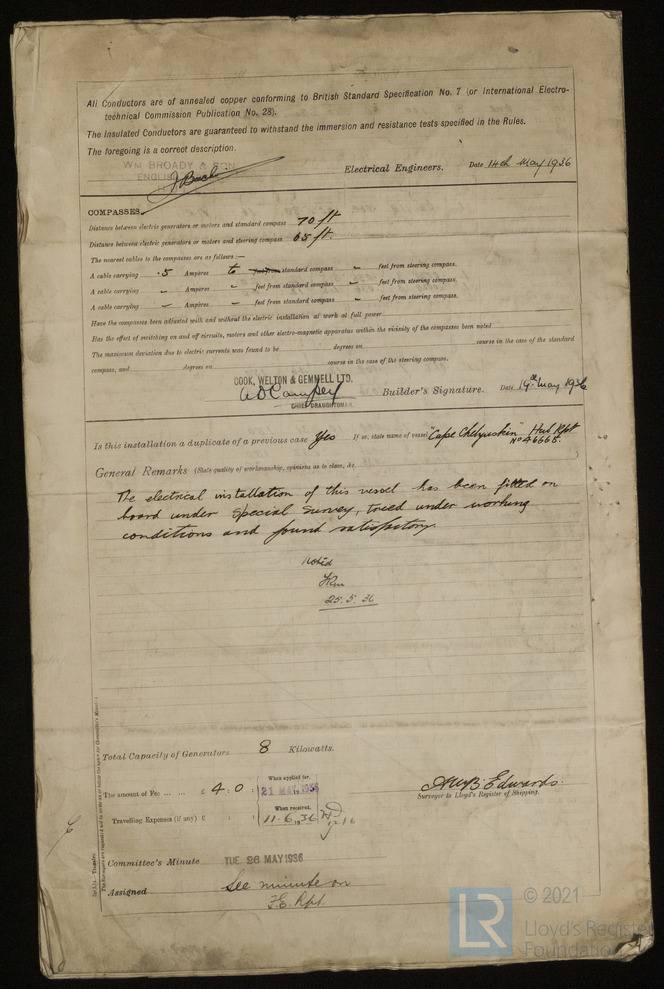 All Conductors are of annealed copper conforming to British Standard Specification No. 7 (or International Electro-
technical Commission Publication No. 28).
The Insulated Conductors are guaranteed to withstand the immersion and resistance tests specified in the Rules.
The foregoing is a correct description.
WM BROADY & SON
Electrical Engineers. Date 14th May 1936
COMPASSES.
Distance between electric generators or motors and standard compass 70 ft
Distance between electric generators or motors and steering compass 65 ft.
The nearest cables to the compasses are as follows:—
A cable carrying .5 Ampères to standard compass – feet from steering compass.
A cable carrying – Ampères – feet from standard compass – feet from steering compass.
A cable carrying – Ampères – feet from standard compass – feet from steering compass.
Have the compasses been adjusted with and without the electric installation at work at full power
Has the effect of switching on and off circuits, motors and other electro-magnetic apparatus within the vicinity of the compasses been noted
The maximum deviation due to electric currents was found to be degrees on course in the case of the standard
compass, and degrees on course in the case of the steering compass.
COOK, WELTON & GEMMELL LTD.
CHIEF DRAUGHTSMAN.
Builder's Signature. Date 14th May 1936
Is this installation a duplicate of a previous case Yes If so, state name of vessel "Cape Chelyuskin" Hul Rpt
No 46668.
General Remarks (State quality of workmanship, opinions as to class, &c.
The electrical installation of this vessel has been fitted on
board under Special Survey, tried under working
conditions and found satisfactory.
Noted
25.5.36
Total Capacity of Generators 8 Kilowatts.
The amount of Fee ... ... £ 4 : 0 : When applied for, 21 MAY 1936
Travelling Expenses (if any) £ : : When received, 11.6.1936
Edwards.
Surveyor to Lloyd's Register of Shipping.
Committee's Minute TUE 26 MAY 1936
Assigned See minute on
F.E. Rpt.
© 2021
LR
Lloyd's Register
Foundation